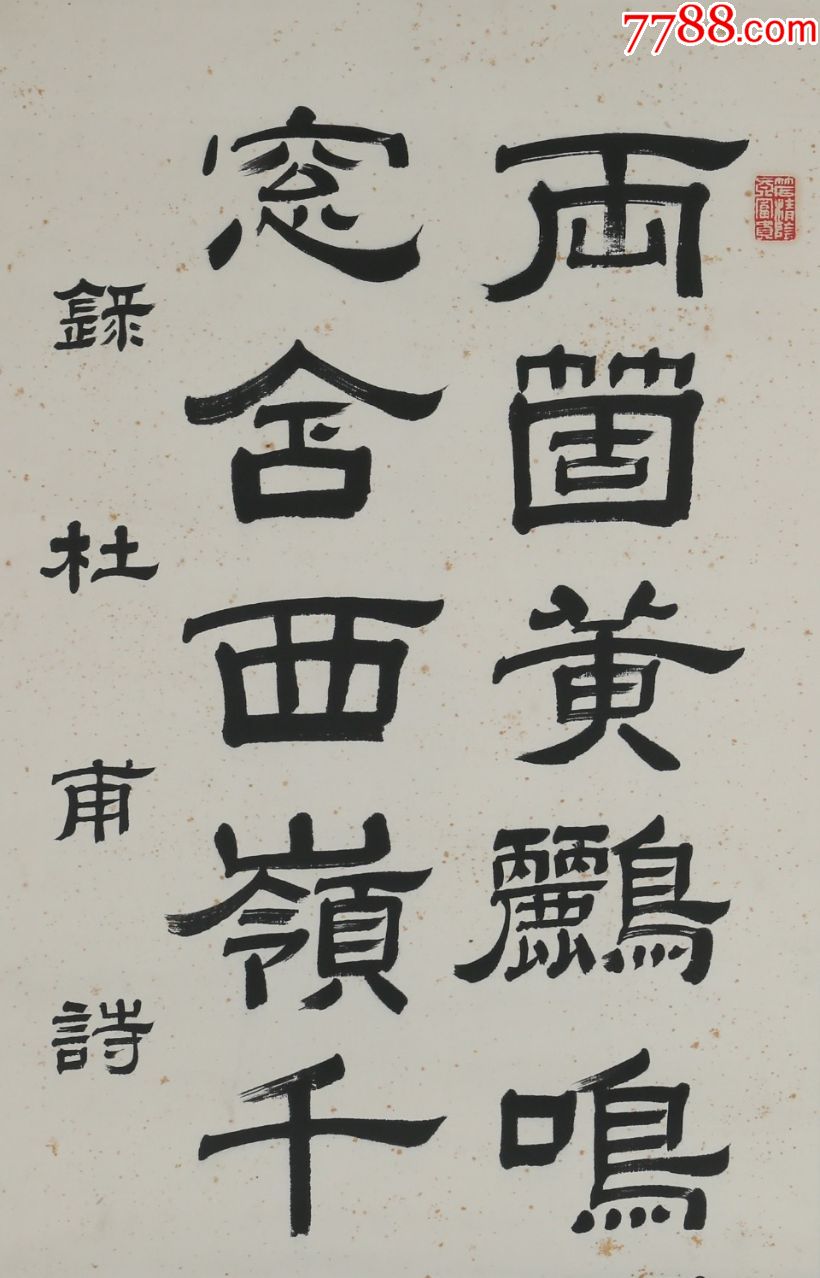 7788.com
兩箇黃鸝鳴
窓含西嶺千
錄杜甫詩